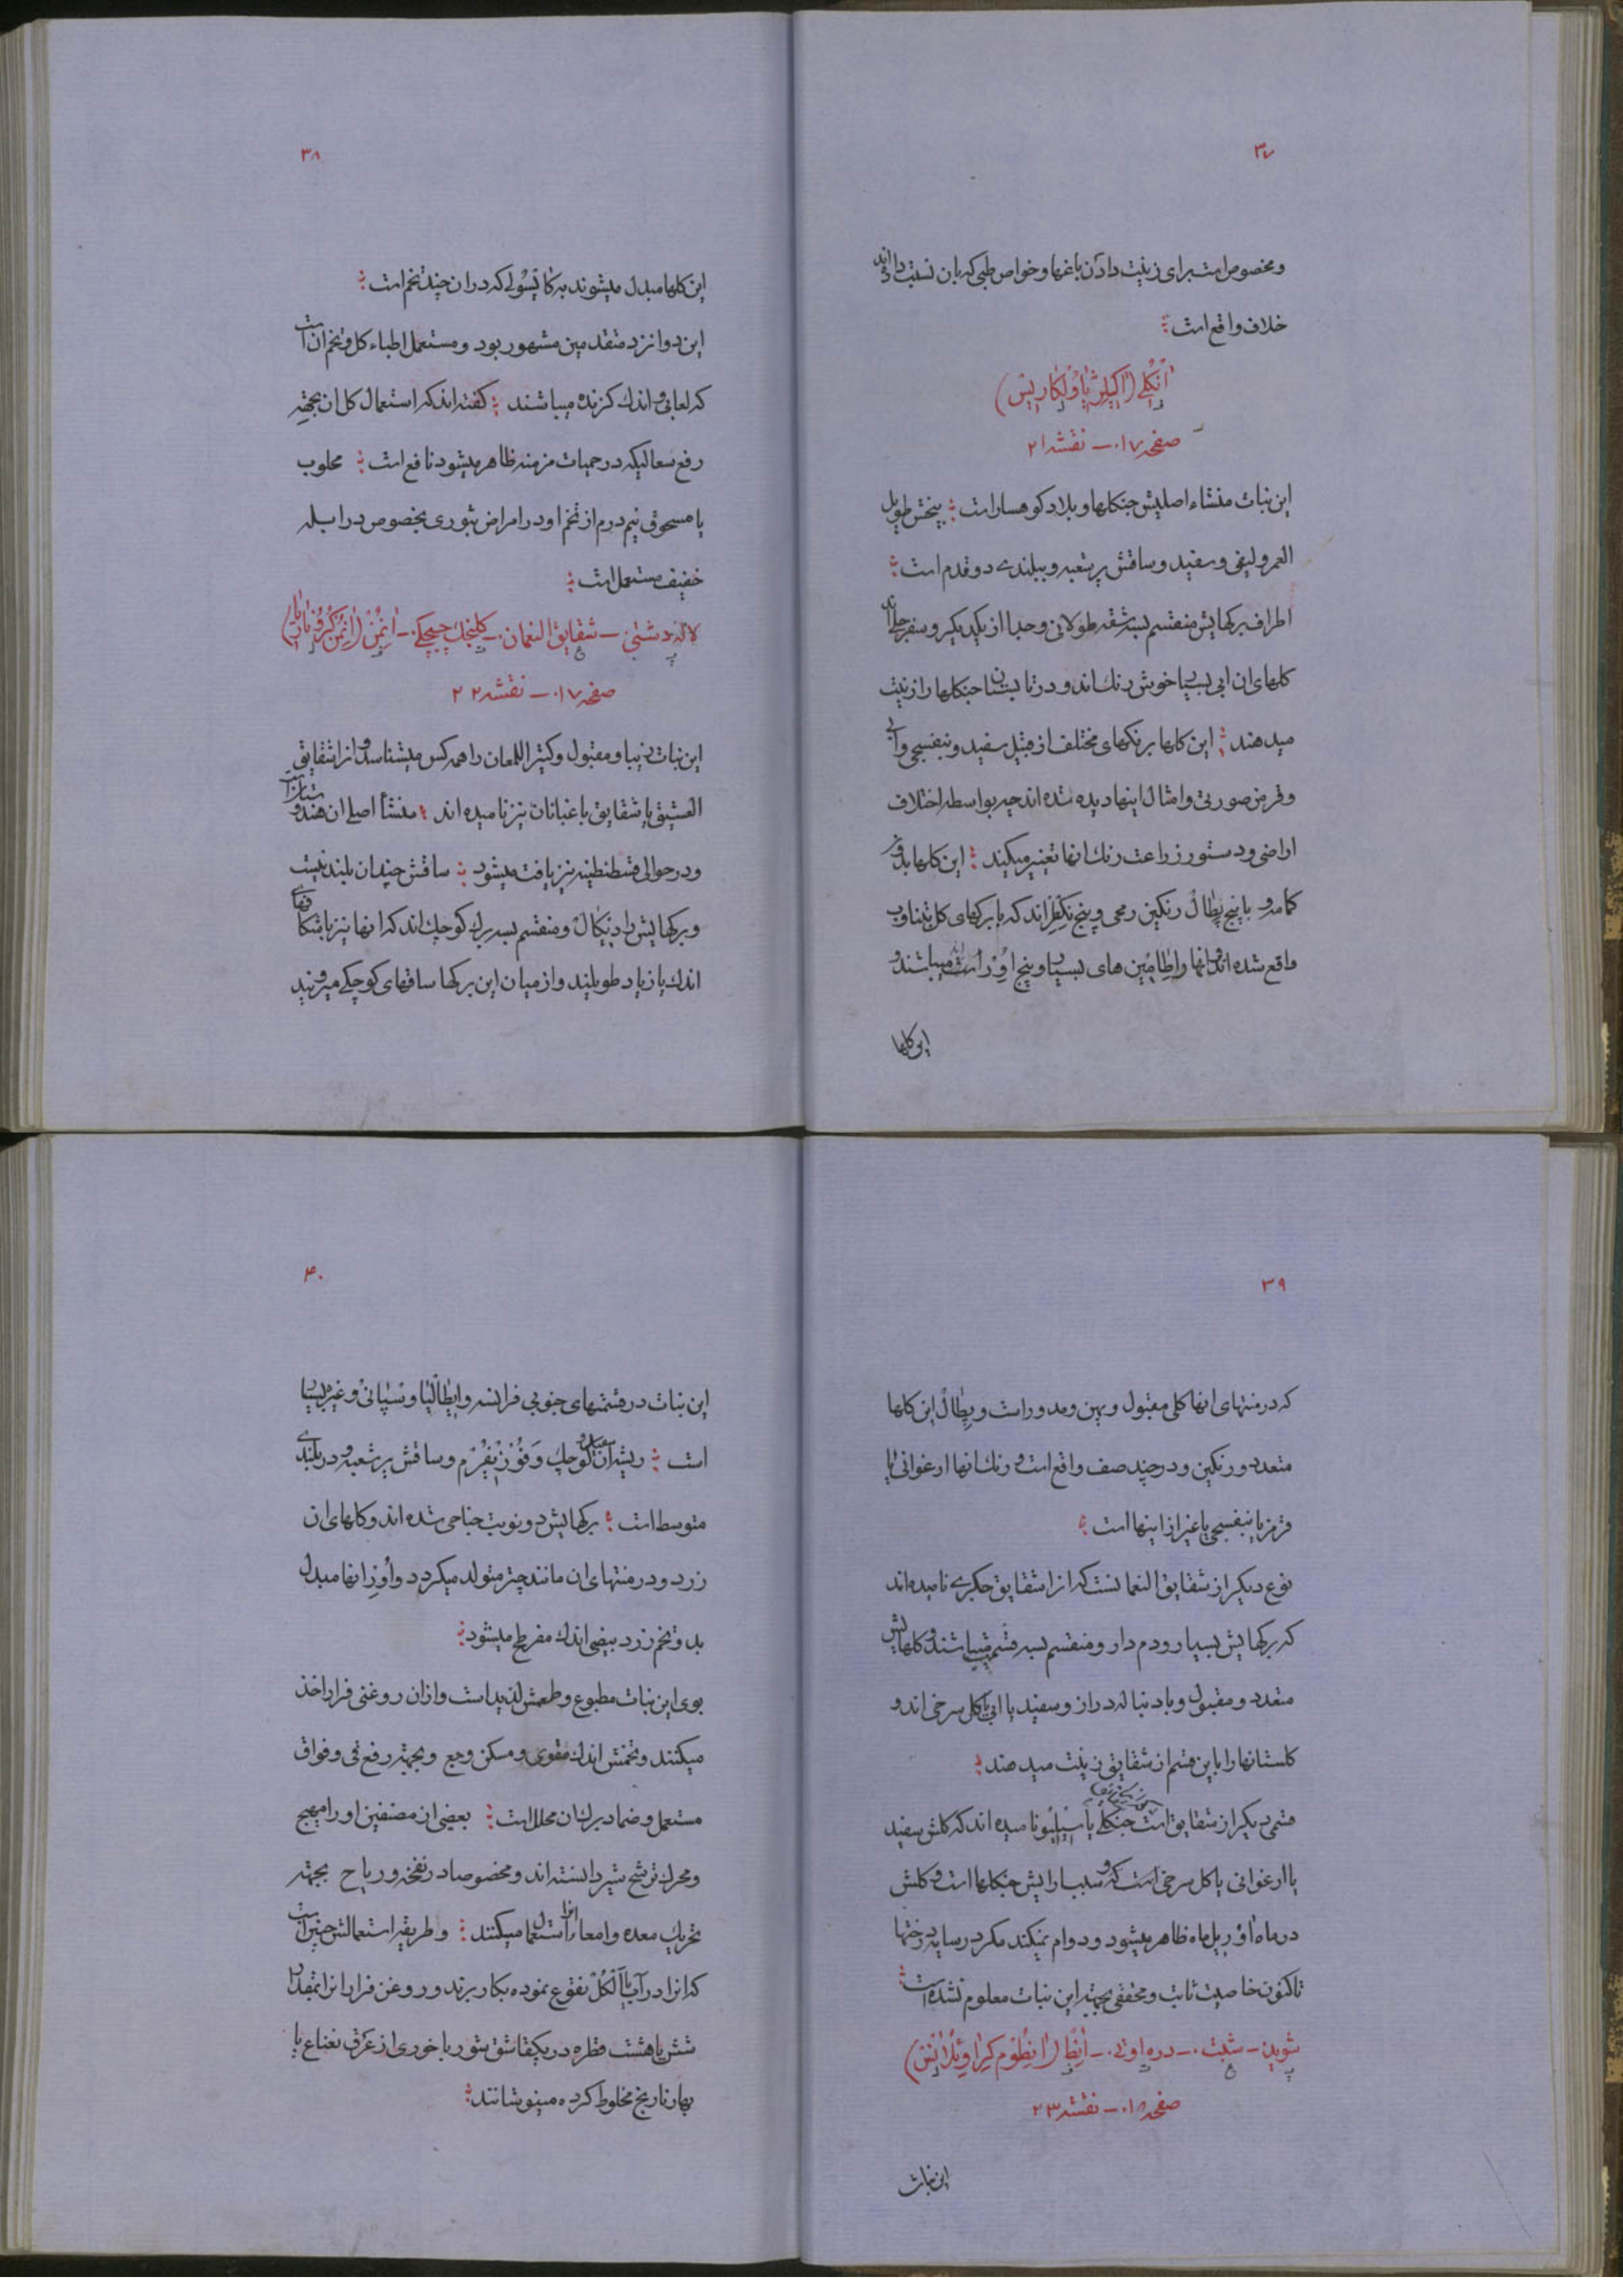 ۳۷
و مخصوص است برای زینت دادن باغها و خواص طبی که بان نسبت داده اند
خلاف واقع است
اَنْکُلِی (اَکِیلِژْیَا وُلْکَارِیسْ)
صفحه ۰۱۷ ـ نقشه ۲۱
این نبات منشاء اصلیش جنکلها و بلاد کوهسار است بیخش طویل
العمر و لیفی و سفید و ساقش پر شعبه و ببلندی دو قدم است
اطراف برکهایش منقسم بسه شقه طولانی و جدا از یکدیکر و سفرجلی اند
کلهای ان ابی بسیار خوش رنک اند و در تابستان جنکلها را زینت
میدهند این کلها برنکهای مختلف از قبیل سفید و بنفسجی و ابی
و قرمز صورتی و امثال اینها دیده شده اند چه بواسطه اختلاف
اراضی و دستور زراعت رنک انها تغییر میکند این کلها بدون
کامه و با پنج پطال رنکین رمحی و پنج نکطر اند که با برکهای کل بتناوب
واقع شده اند و انها را اطامین های بسیار و پنج اوور است میباشند و
این کلها
۳۸
این کلها مبدل میشوند به کاپسولی که دران چند تخم است
این دوا نزد متقدمین مشهور بود و مستعمل اطباء کل و تخم ان است
که لعابی و اندک کزنده میباشند کفته اند که استعمال کل ان بجهته
رفع سعالیکه در حمیات مزمنه ظاهر میشود نافع است محلوب
یا مسحوق نیم درم از تخم او در امراض بثوری بخصوص در ابله
خفیف مستعمل است
لاله دشتی ـ شقایق النعمان ـ کلینجک چیچکی ـ اَنِمُنْ (اَنِمُنْ کُرُوناریا)
صفحه ۰۱۷ ـ نقشه ۲۲
این نبات زیبا و مقبول و کثیر اللمعان را همه کس میشناسد و انرا شقایق
العشیق یا شقایق باغبانان نیز نامیده اند منشأ اصلی ان هندوستان است
و در حوالی قسطنطینه نیز یافت میشود ساقش چندان بلند نیست
و برکهایش رادیکال و منقسم بسه برک کوچک اند که انها نیز با شکافهای
اندک یا زیاد طویلند و از میان این برکها ساقهای کوچکی میرویند
۳۹
که در منتهای انها کلی مقبول و پهن و مدور است و پطال این کلها
متعدد و رنکین و در چند صف واقع است و رنک انها ارغوانی یا
قرمز یا بنفسجی یا غیر از اینها است
نوع دیکر از شقایق النعمانست که انرا شقایق جکری نامیده اند
که برکهایش بسیار و دم دار و منقسم بسه قسم میباشند و کلهایش
متعدد و مقبول و با دنباله دراز و سفید یا ابی یا کل سرخی اند و
کلستانها را باین قسم از شقایق زینت میدهند
قسمی دیکر از شقایق است جنکلی یا سیلیو نامیده اند که کلش سفید
یا ارغوانی یا کل سرخی است که و سبب ارایش جنکلها است و کلش
در ماه اوریل ماه ظاهر میشود و دوام نمیکند مکر در سایه درختها
تاکنون خاصیت ثابت و محققی بجهته این نبات معلوم نشده است
شوید ـ شبت ـ دره اوتی ـ اَنِطْ (اَنِطُومْ کِرَاوِئُلَانْس)
صفحه ۰۱۸ ـ نقشه ۲۳
این نبات
۴۰
این نبات در قسمتهای جنوبی فرانسه و ایطالیا و سپانی و غیره بسیار
است ریشه ان سفید و کوچک و فوزیفرم و ساقش پر شعبه و در بلندی
متوسط است برکهایش دو نوبت جناحی شده اند و کلهای ان
زرد و در منتهای ان مانند چتر متولد میکردد و اوور انها مبدل
بدو تخم زرد بیضی اندک مفرطح میشود
بوی این نبات مطبوع و طعمش لذید است و ازان روغنی فرار اخذ
میکنند و تخمش اندک مقوی و مسکن وجع و بجهته رفع قی و فواق
مستعمل و ضماد برک ان محلل است بعضی از مصنفین او را مهیج
و محرک ترشح شیر دانسته اند و مخصوصا در نفخه و ریاح بجهته
تحریک معده و امعاء انرا استعمال میکنند و طریقه استعمالش چنین است
که انرا در آب یا اَلْکُلْ نقوع نموده بکار برند و روغن فرار انرا بمقدار
شش یا هشت قطره در یکقاشق شورباخوری از عرق نعناع یا
بهار نارنج مخلوط کرده مینوشانند